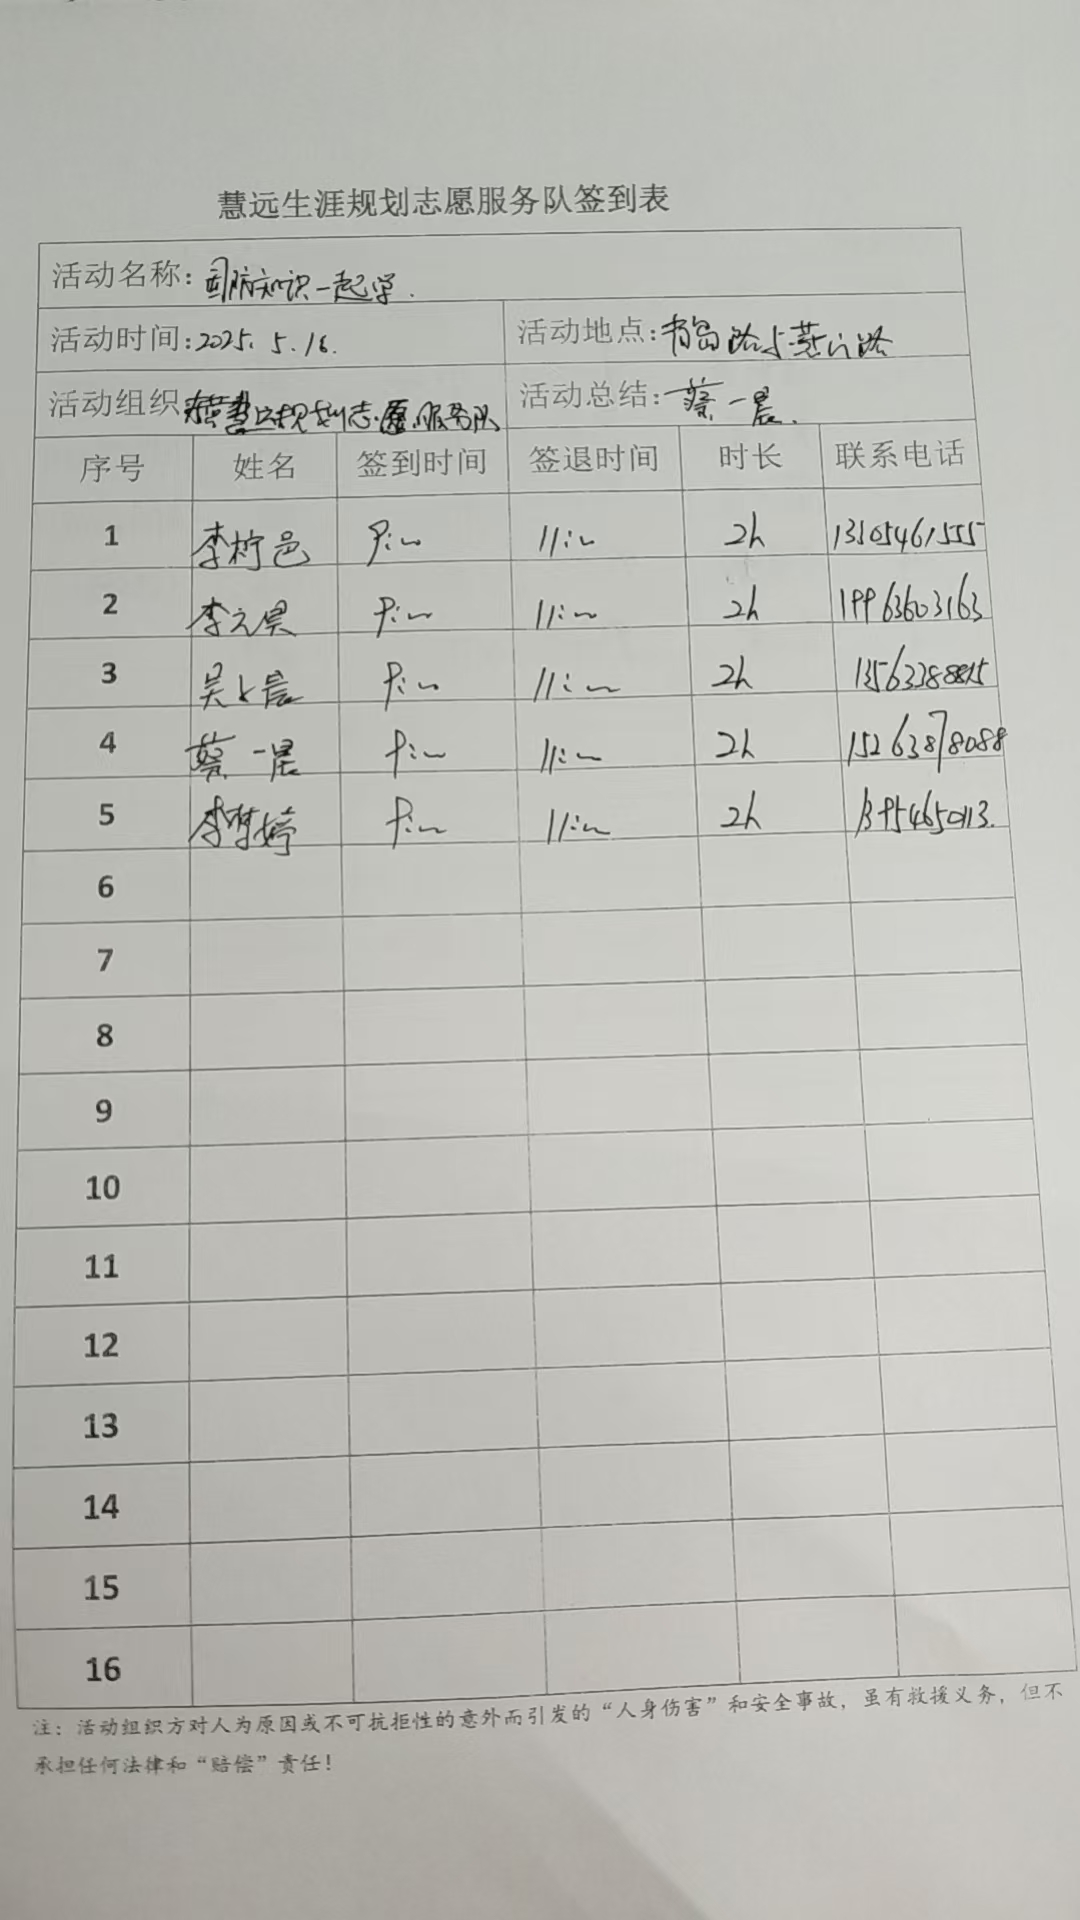 慧远生涯规划志愿服务队签到表
活动名称：国防知识一起学.
活动时间：2025.5.16. 活动地点：青岛路与燕山路
活动组织 慧远规划志愿服务队 活动总结：蔡一晨.
序号 姓名 签到时间 签退时间 时长 联系电话
1 李柠邑 9:00 11:00 2h 13505461555
2 李元昊 9:00 11:00 2h 19963603163
3 吴 晨 9:00 11:00 2h
4 蔡一晨 9:00 11:00 2h 15263878088
5 李 婷 9:00 11:00 2h
6
7
8
9
10
11
12
13
14
15
16
注：活动组织方对人为原因或不可抗拒性的意外而引发的“人身伤害”和安全事故，虽有救援义务，但不
承担任何法律和“赔偿”责任！